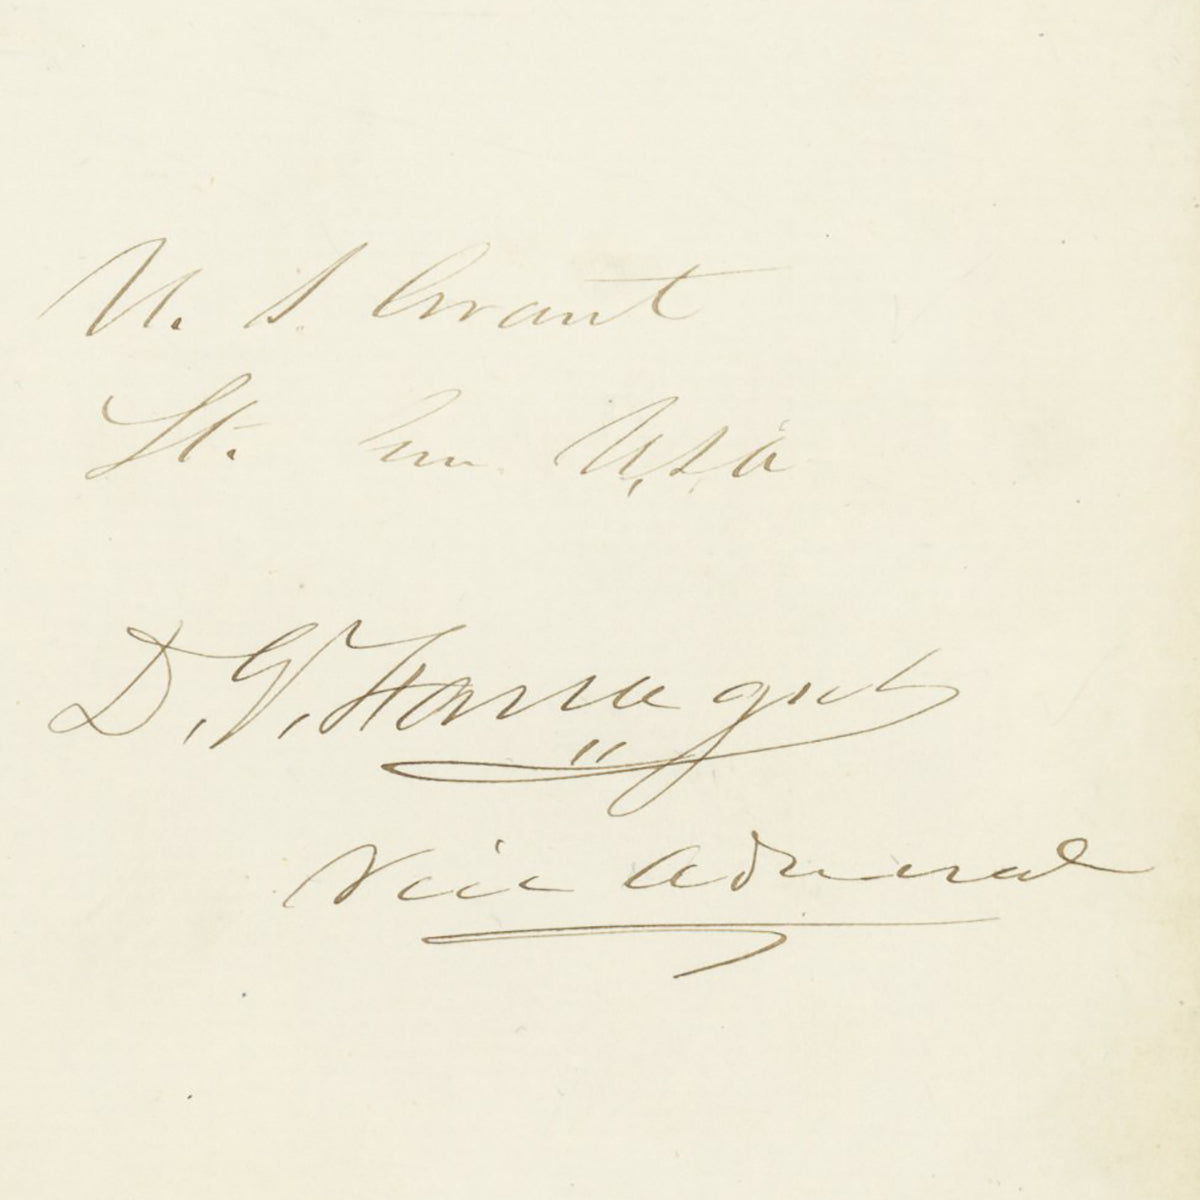 U. S. Grant
Lt. Gen. U.S.A
D. G. Farragut
Vice Admiral